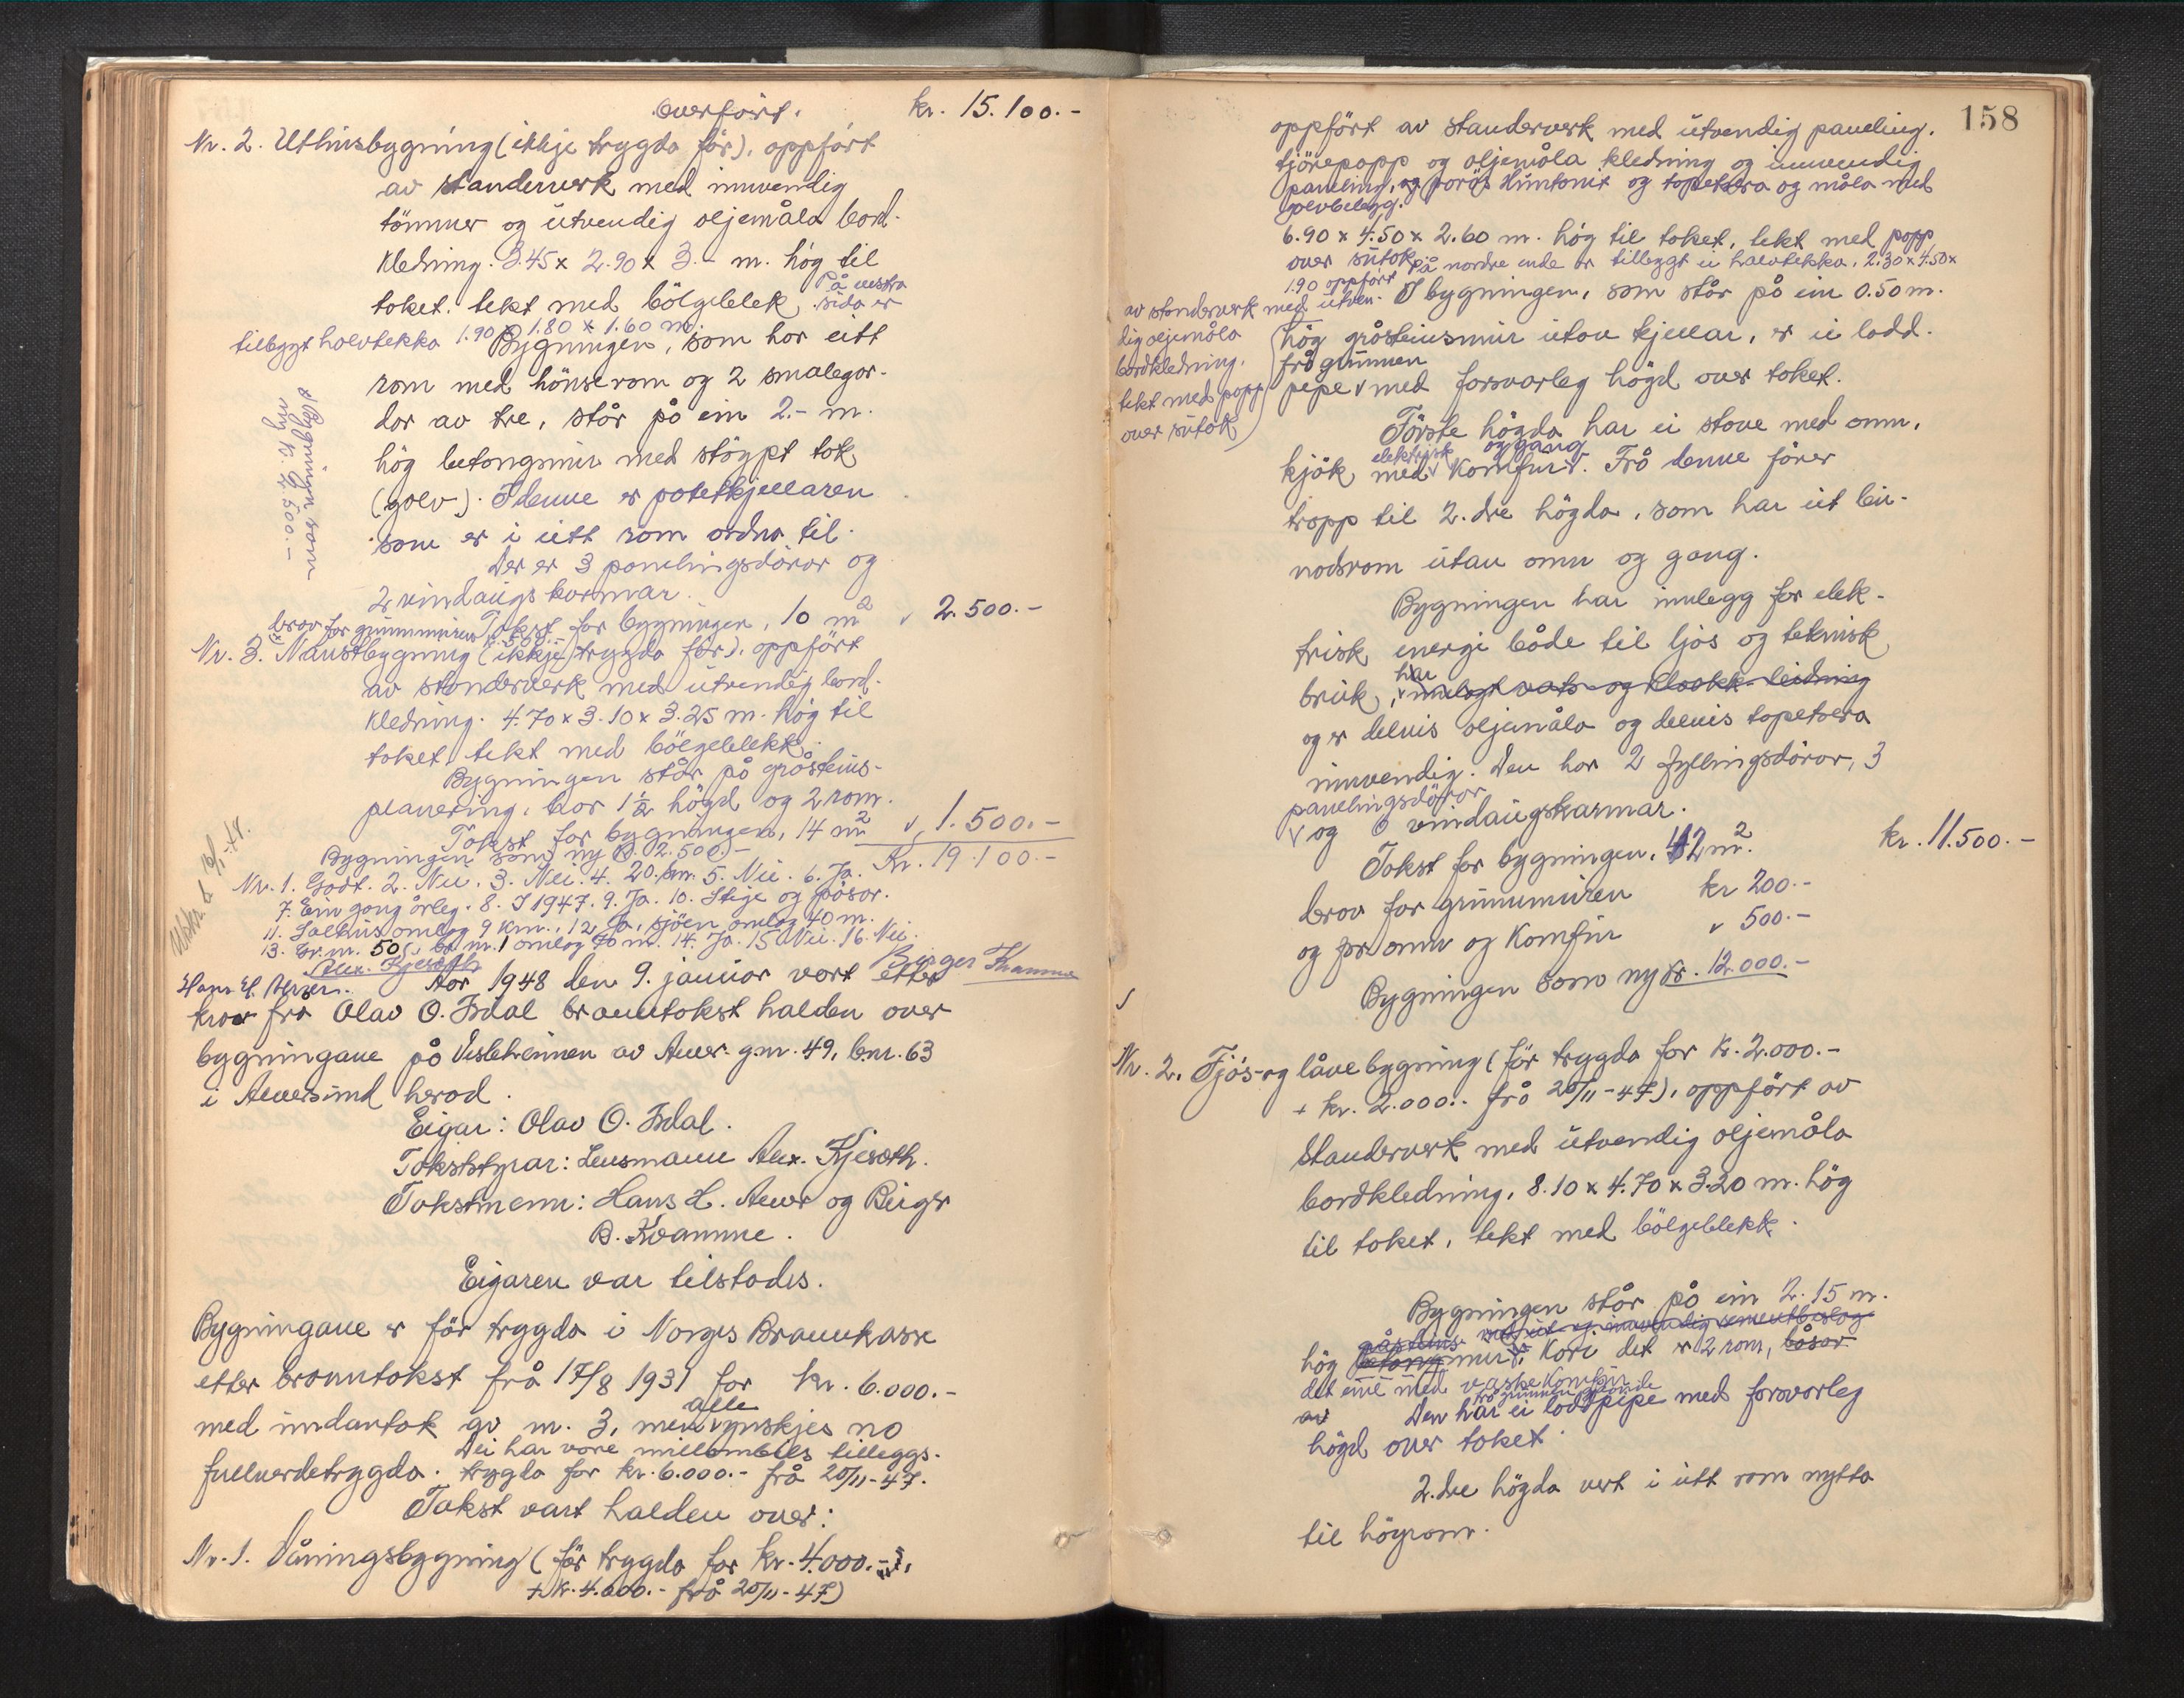 Overført. kr. 15.100.-
Nr. 2. Uthusbygning (ikkje trygda før), oppført
av standerverk med innvendig
tömmer og utvendig oljemåla bord-
kledning. 3.45 x 2.90 x 3.- m. høg til
taket. tekt med bölgeblek. På vestra
sida er
tilbygt halvtekka 1.90 x 1.80 x 1.60 m.
Bygningen, som har eitt
rom med hönserom og 2 smalegar-
dar av tre, står på ein 2.- m.
høg betongmur med stöypt tak
(golv). I denne er potetkjellaren
som er i eitt rom ordna til.
Der er 3 panelingsdörar og
2 vindaugskarmar.
Bygningen som
ny kr. 3.500.-
Takst for bygningen, 10 m2 " 2.500.-
brov for grunnmuren
Nr. 3. Naustbygning (ikkje trygda før), oppført
av standerverk med utvendig bord-
kledning. 4.70 x 3.10 x 3.25 m. høg til
taket, tekt med bölgeblekk.
Bygningen står på gråsteins-
planering, har 1½ høgd og 2 rom.
Takst for bygningen, 14 m2 " 1.500.-
Bygningen som ny kr. 2.500.- Kr. 19.100.-
Nr. 1. Godt. 2. Nei. 3. Nei. 4. 20 km. 5. Nei. 6. Ja.
7. Ein gong årleg. 8. I 1947. 9. Ja. 10. Stige og pösar.
11. Salhus omlag 9 km. 12. Ja, sjöen omlag 40 m.
13. Br. nr. 50, br. nr. 1 omlag 70 m. 14. Ja. 15. Nei. 16. Nei.
Alex. Kjesæth Birger Kvamme
Hans H. Alver.
Aar 1948 den 9. januar vart etter
krav fra Olav O. Isdal branntakst halden over
bygningane på Vesleheimen av Alver g.nr. 49, b.nr. 63
i Alversund herad.
Eigar: Olav O. Isdal.
Takststyrar: Lensmann Alex. Kjesæth.
Takstmenn: Hans H. Alver og Birger
B. Kvamme.
Eigaren var tilstades.
Bygningane er för trygda i Norges Brannkasse
etter branntakst frå 17/8 1931 for kr. 6.000.-
med undantak av nr. 3, men alle ynskjes no
fullverdetrygda. Dei har vore millombels tilleggs-
trygda for kr. 6.000.- frå 20/11-47.
Takst vart halden over:
Nr. 1. Våningsbygning (för trygda for kr. 4.000.-
+ kr. 4.000.- frå 20/11-47)
158
oppfört av standerverk med utvendig paneling,
tjörepapp og oljemåla kledning og innvendig
paneling, og porös Huntonit og tapetsera og måla med
golvbelegg.
6.90 x 4.50 x 2.60 m. høg til taket, tekt med papp
over sutak. På nordre ende er tilbygt ei halvtekka, 2.30 x 4.50 x
1.90 oppfört
av standerverk med utven-
dig oljemåla
bordkledning,
tekt med papp
over sutak
I bygningen, som står på ein 0.50 m.
høg gråsteinsmur utan kjellar, er ei lodd-
frå grunnen
pipe med forsvarleg høgd over taket.
Første høgda har ei stove med omn,
elektrisk og gang
kjök med komfyr. Frå denne förer
tropp til 2. dre høgda, som har eit bu-
nadsrom utan omn og gang.
Bygningen har innlegg for elek-
trisk energi både til ljos og teknisk
har
bruk, innlagt vats- og kloakk-leidning
og er delvis oljemåla og delvis tapetsera
innvendig. Den har 2 fyllingsdörar, 3
panelingsdörar
og 6 vindaugskarmar.
Takst for bygningen, 42 m2. kr. 11.500.-
brov for grunnmuren kr 200.-
og for omn og komfyr " 500.-
Bygningen som ny kr. 12.000.-
Nr. 2. Fjös- og låvebygning (för trygda for kr. 2.000.-
+ kr. 2.000.- frå 20/11-47), oppfört av
standerverk med utvendig oljemåla
bordkledning. 8.10 x 4.70 x 3.20 m. høg
til taket, tekt med bölgeblekk.
Bygningen står på ein 2.15 m.
gråsteins med ut- og innvendig sementbeslag
høg betong mur. Kori det er 2 rom, båsar
det eine med vaskekomfyr.
frå grunnen gåande
av Den har ei loddpipe med forsvarleg
høgd over taket.
2. dre høgda vert i eitt rom nytta
til høyrom.